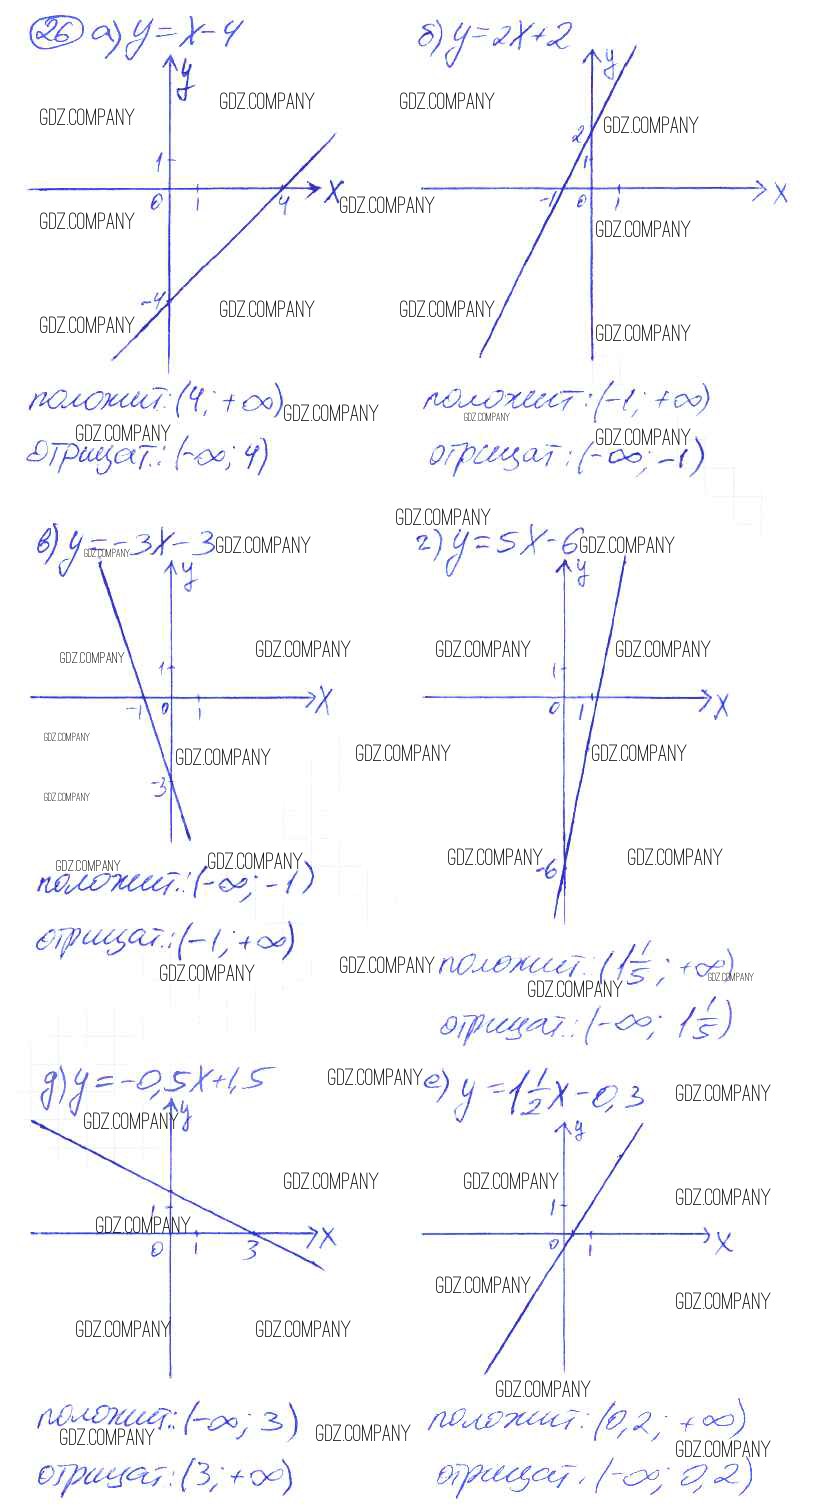 26 а) y = x - 4
y
GDZ.COMPANY GDZ.COMPANY
1
0 1 4 x
GDZ.COMPANY GDZ.COMPANY
-4
GDZ.COMPANY GDZ.COMPANY
положит: (4; +∞)
GDZ.COMPANY
GDZ.COMPANY
отрицат.: (-∞; 4)
б) y = 2x + 2
y
GDZ.COMPANY GDZ.COMPANY
2
1
-1 0 1 x
GDZ.COMPANY
GDZ.COMPANY
GDZ.COMPANY
положит: (-1; +∞)
GDZ.COMPANY
GDZ.COMPANY
отрицат: (-∞; -1)
GDZ.COMPANY
в) y = -3x - 3
GDZ.COMPANY GDZ.COMPANY
y
GDZ.COMPANY GDZ.COMPANY
1
-1 0 1 x
GDZ.COMPANY
GDZ.COMPANY GDZ.COMPANY
-3
GDZ.COMPANY
GDZ.COMPANY GDZ.COMPANY
положит.: (-∞; -1)
отрицат.: (-1; +∞)
GDZ.COMPANY GDZ.COMPANY
г) y = 5x - 6
GDZ.COMPANY
y
GDZ.COMPANY GDZ.COMPANY
1
0 1 x
GDZ.COMPANY
-6
GDZ.COMPANY GDZ.COMPANY
положит: (1 1/5; +∞)
GDZ.COMPANY
GDZ.COMPANY
отрицат.: (-∞; 1 1/5)
д) y = -0,5x + 1,5
GDZ.COMPANY
y
GDZ.COMPANY
GDZ.COMPANY
1
GDZ.COMPANY
0 1 3 x
GDZ.COMPANY GDZ.COMPANY
положит.: (-∞; 3)
GDZ.COMPANY GDZ.COMPANY
отрицат: (3; +∞)
е) y = 1 1/2 x - 0,3
GDZ.COMPANY
y
GDZ.COMPANY GDZ.COMPANY
1
0 1 x
GDZ.COMPANY GDZ.COMPANY
GDZ.COMPANY
положит: (0,2; +∞)
GDZ.COMPANY
отрицат. (-∞; 0,2)